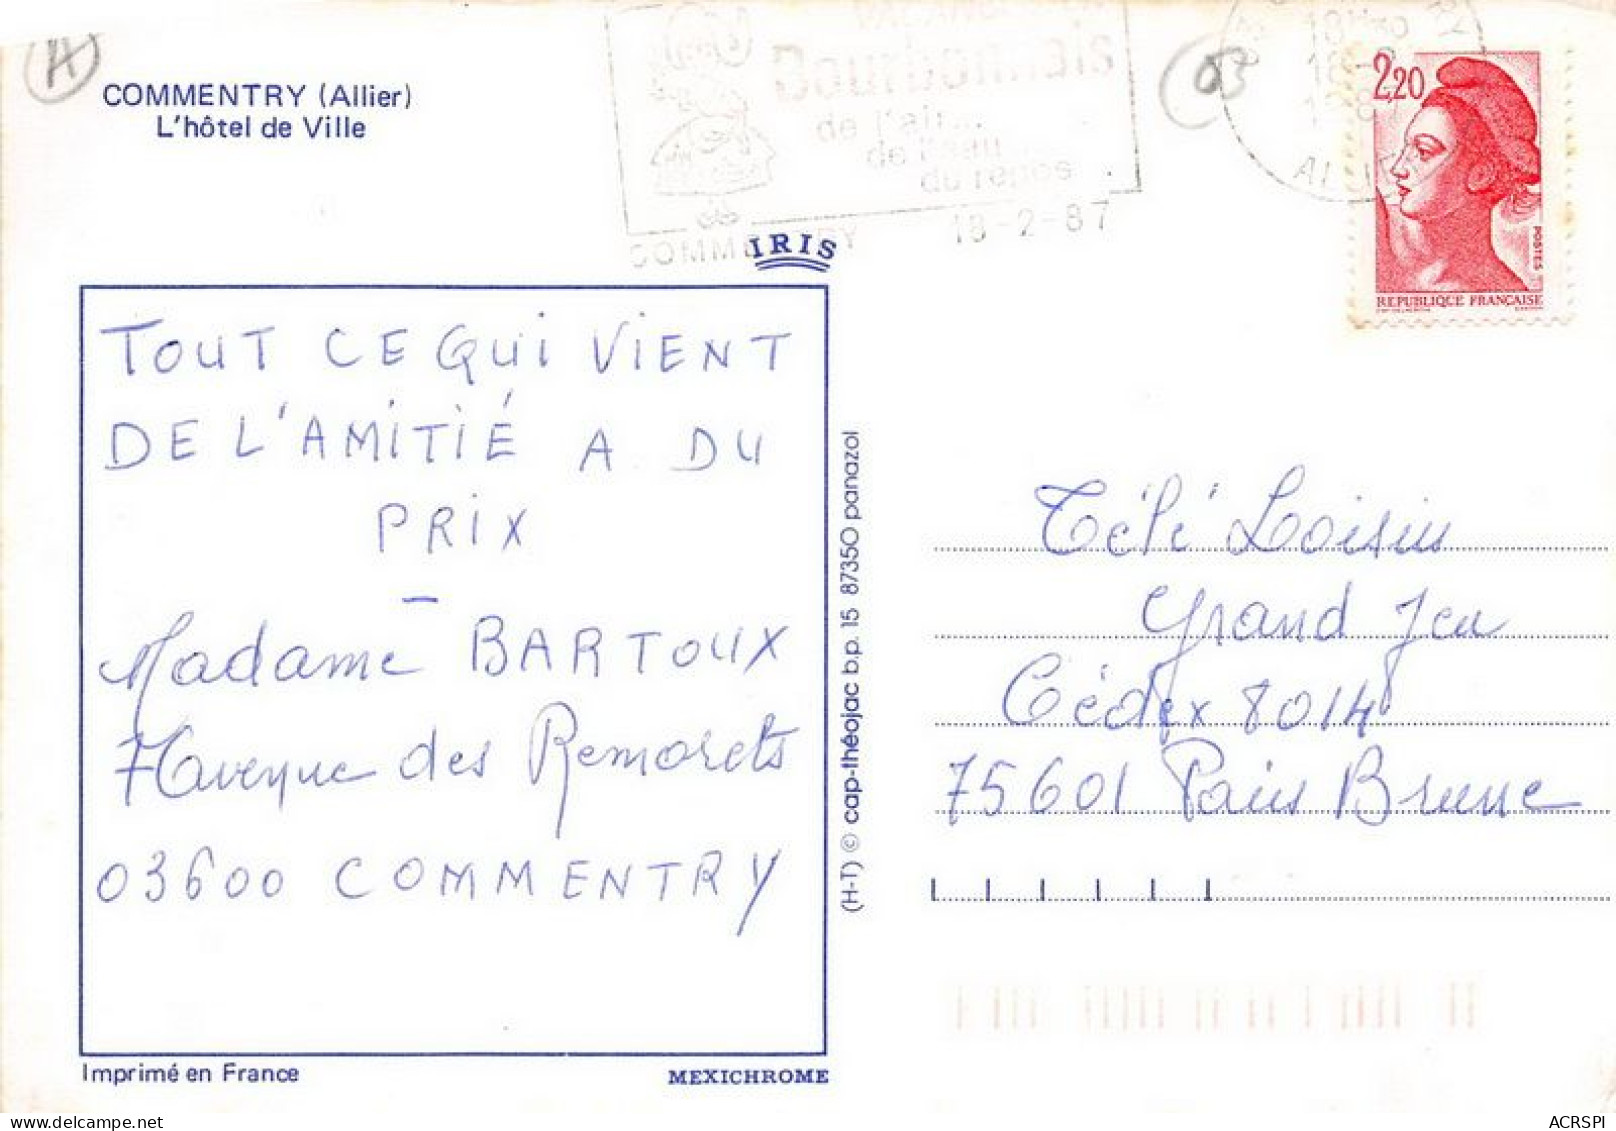 A
COMMENTRY (Allier)
L'hôtel de Ville
Bourbonnais
de l'air..
de l'eau
du repos
COMMENTRY 18-2-87
03
ALLIER
2,20
POSTES
REPUBLIQUE FRANÇAISE
IRIS
TOUT CE QUI VIENT
DE L'AMITIÉ A DU
PRIX
Madame BARTOUX
7 avenue des Remorets
03600 COMMENTRY
Imprimé en France
MEXICHROME
(H-T) © cap-théojac b.p. 15 87350 panazol
Télé Loisirs
Grand Jeu
Cédex 8014
75601 Paris Brune
ACRSPI